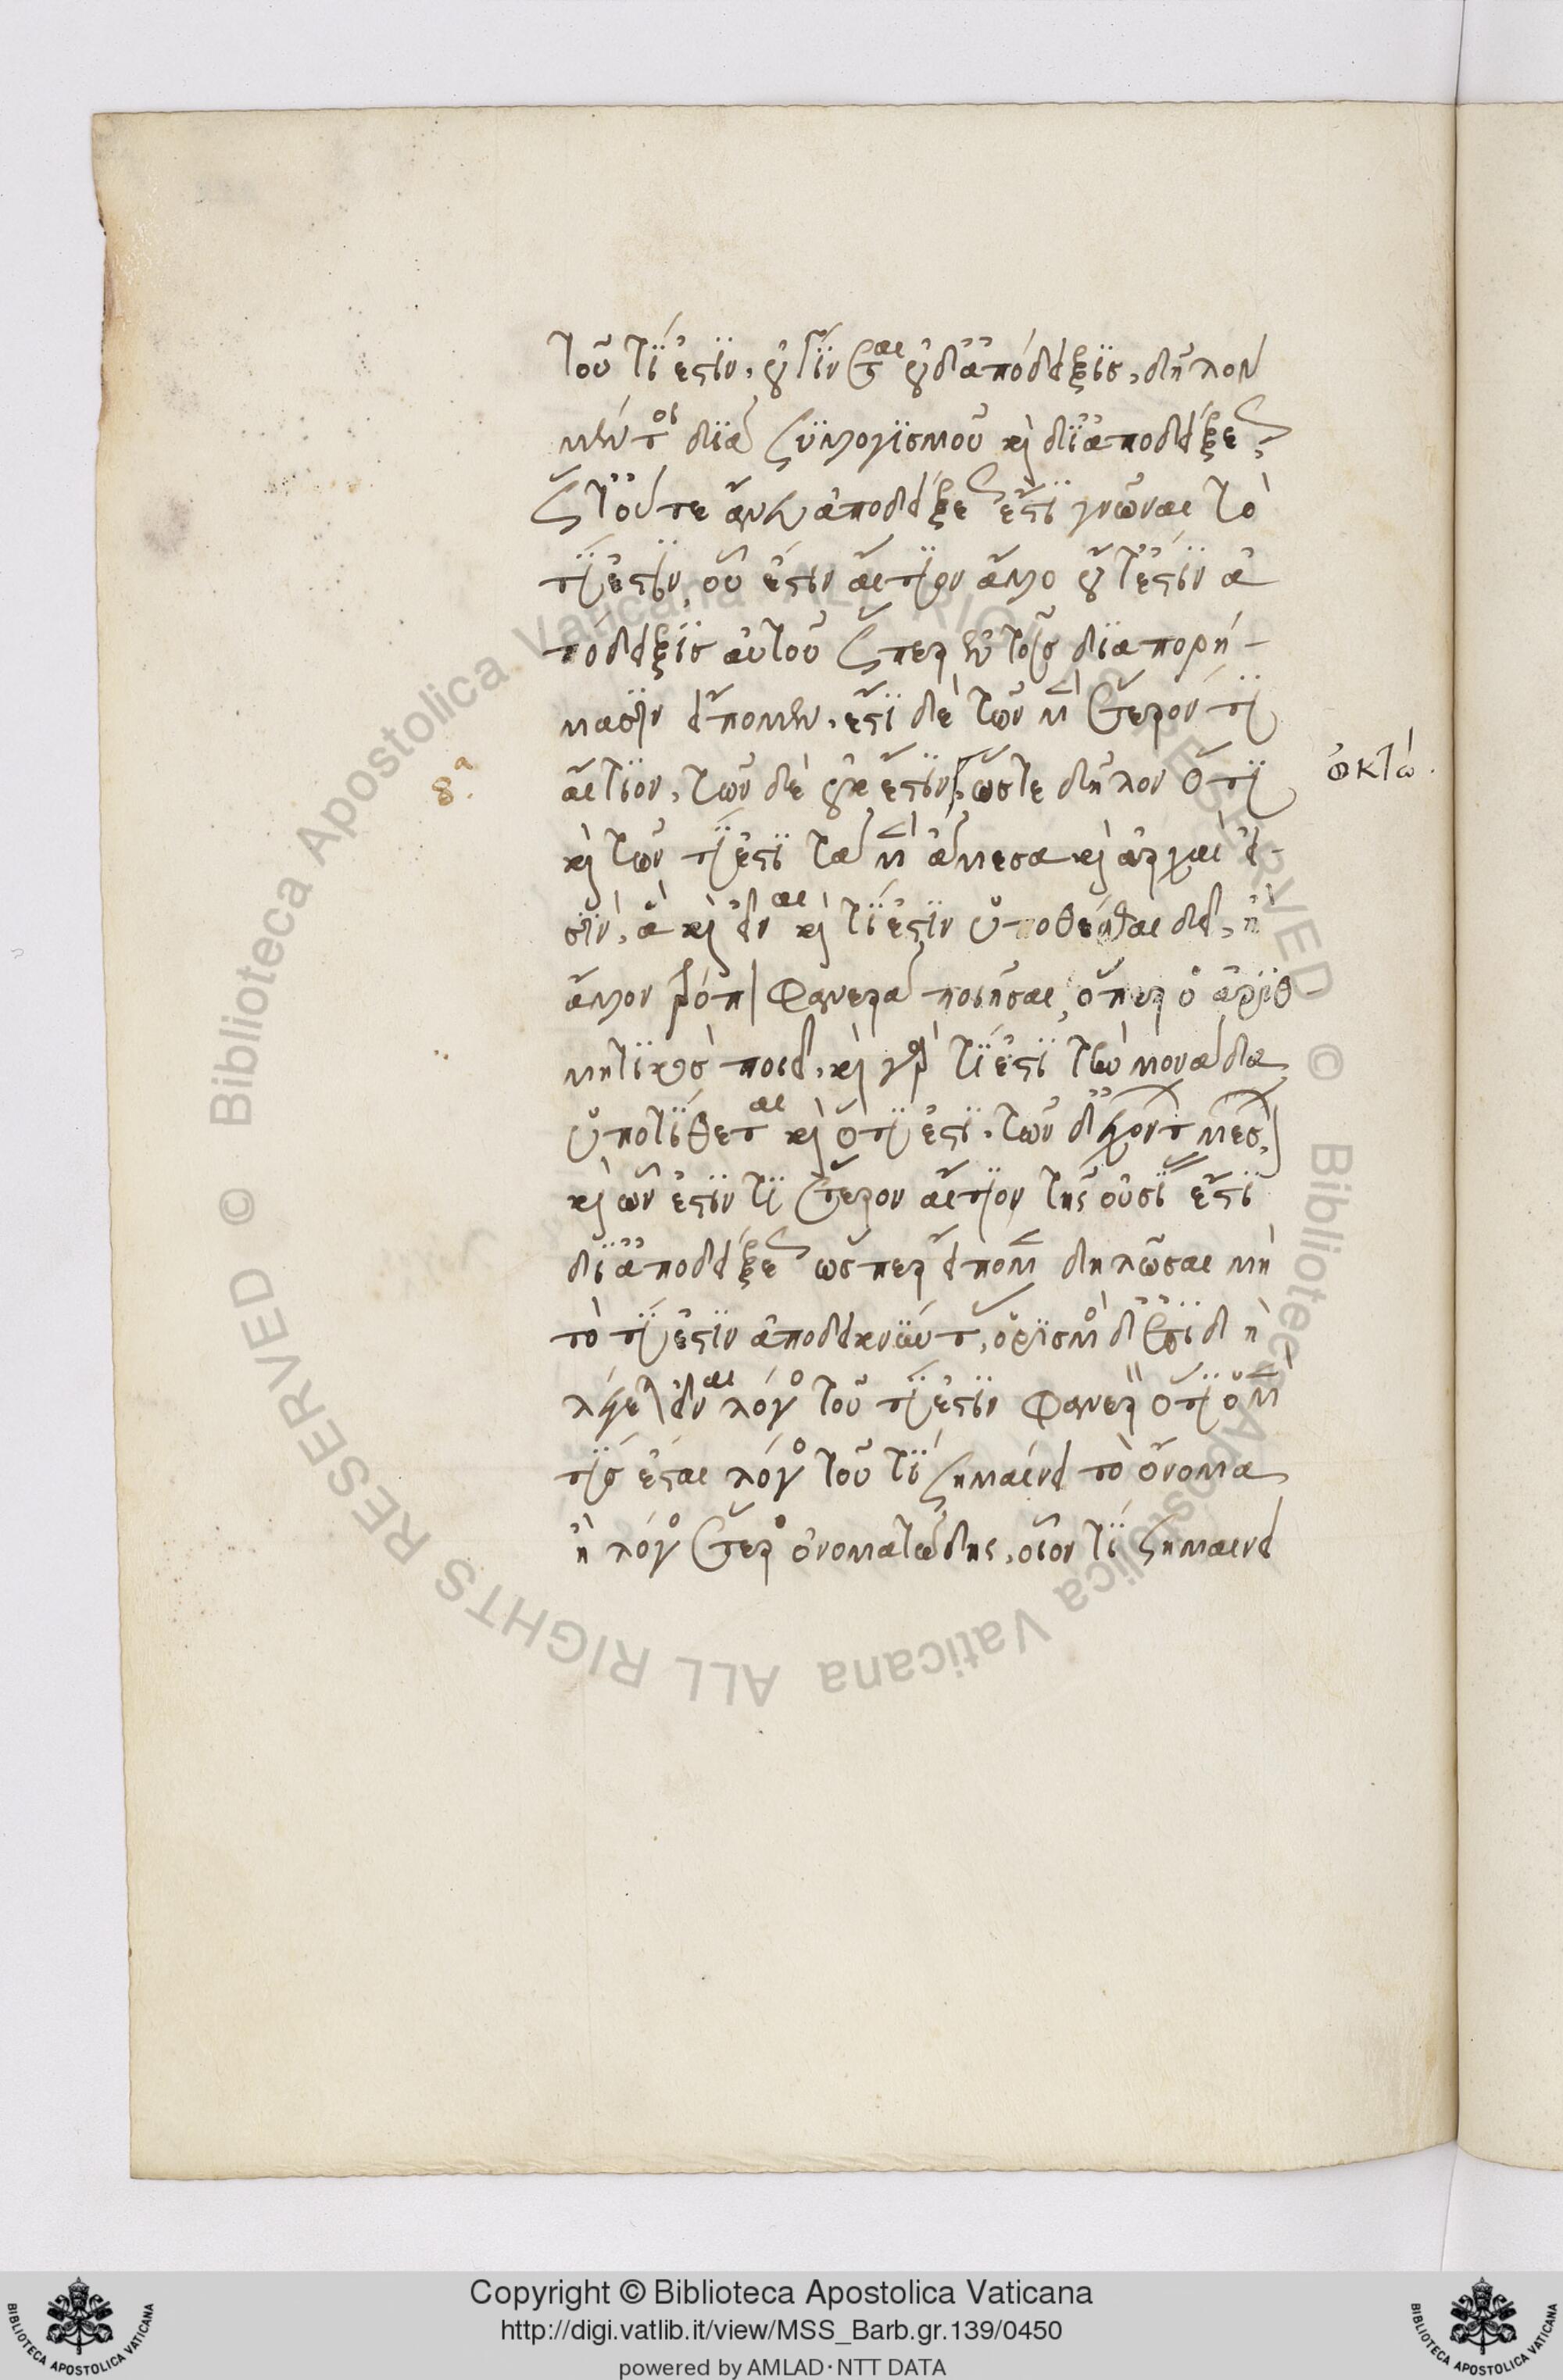 τοῦ τί ἐστιν, οὐ γίνεται οὐδ' ἀπόδειξις, δῆλον
μέντοι διὰ συλλογισμοῦ καὶ δι' ἀποδείξεως
ὥστ' οὔτε ἄνευ ἀποδείξεως ἔστι γνῶναι τὸ
τί ἐστιν, οὗ ἐστιν αἴτιον ἄλλο οὔτ' ἔστιν ἀ
πόδειξις αὐτοῦ ὥσπερ ἐν τοῖς διαπορή-
μασιν εἴπομεν. ἔστι δὲ τῶν μὲν ἕτερόν τι
αἴτιον, τῶν δὲ οὐκ ἔστιν, ὥστε δῆλον ὅτι
ὀκτώ.
8.ª
καὶ τῶν τί ἐστι τὰ μὲν ἄμεσα καὶ ἀρχαί εἰ-
σιν, ἃ καὶ εἶναι καὶ τί ἐστιν ὑποθέσθαι δεῖ, ἢ
ἄλλον τρόπον φανερὰ ποιῆσαι, ὅπερ ὁ ἀριθ
μητικὸς ποιεῖ, καὶ γὰρ τί ἐστι τὴν μονάδα
ὑποτίθεται καὶ ὅτι ἐστι. τῶν δ' ἐχόντων μέσον,
καὶ ὧν ἐστιν τι ἕτερον αἴτιον τῆς οὐσίας ἔστι
δι' ἀποδείξεως ὥσπερ εἴπομεν δηλῶσαι μὴ
τὸ τί ἐστιν ἀποδεικνύντας, ὁρισμὸς δ' ἐπειδὴ
λέγεται εἶναι λόγος τοῦ τί ἐστιν φανερὸν ὅτι ὁ μέν
τις ἔσται λόγος τοῦ τί σημαίνει τὸ ὄνομα
ἢ λόγος ἕτερος ὀνοματώδης, οἷον τί σημαίνει
Copyright © Biblioteca Apostolica Vaticana
http://digi.vatlib.it/view/MSS_Barb.gr.139/0450
powered by AMLAD·NTT DATA